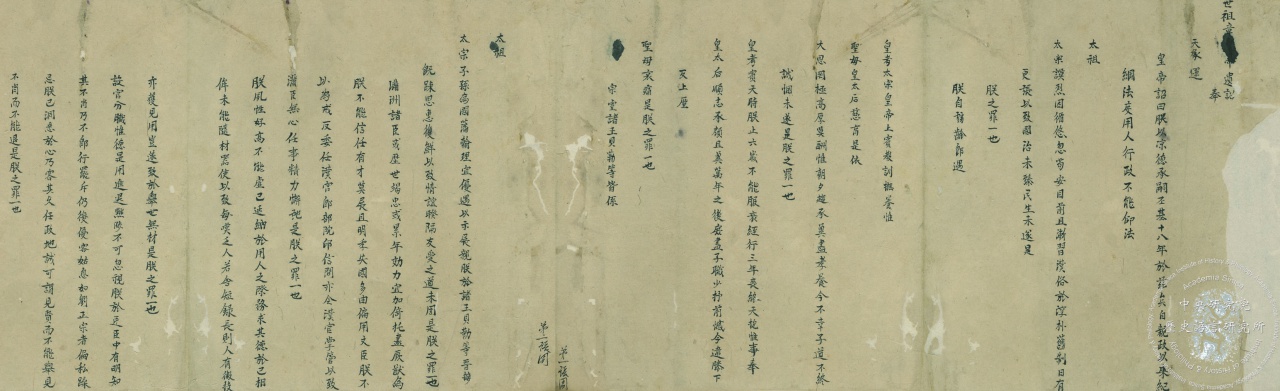 世祖章皇帝遺詔
奉
天承運
皇帝詔曰朕以凉德承嗣丕基十八年於茲矣自親政以來紀
綱法度用人行政不能仰法
太祖
太宗謨烈因循悠忽苟安目前且漸習漢俗於淳朴舊制日有
更張以致國治未臻民生未遂是
朕之罪一也
朕自弱齡即遇
皇考太宗皇帝上賓教訓撫養惟
聖母皇太后慈育是依
大恩罔極高厚莫酬惟朝夕趨承冀盡孝養今不幸子道不終
誠悃未遂是朕之罪一也
皇考賓天時朕止六歲不能服衰絰行三年喪終天抱憾惟事奉
皇太后順志承顏且冀萬年之後庶盡子職少抒前憾今違膝下
反上厪
聖母哀痛是朕之罪一也
宗室諸王貝勒等皆係
太祖
太宗子孫為國藩翰理宜優遇以示展親朕於諸王貝勒等晉接
既疎恩惠復鮮以致情誼睽隔友愛之道未周是朕之罪一也
滿洲諸臣或歷世竭忠或累年効力宜加倚托盡厥猷為
朕不能信任有才莫展且明季失國多由偏用文臣朕不
以為戒反委任漢官即部院印信間亦令漢官掌管以致
滿臣無心任事精力懈弛是朕之罪一也
朕夙性好高不能虛己延納於用人之際務求其德於己相
侔未能隨材器使以致每嘆乏人若舍短錄長則人有微技
亦獲見用豈遂致於舉世無材是朕之罪一也
設官分職惟德是用進退黜陟不可忽視朕於廷臣中有明知
其不肖乃不即行罷斥仍復優容姑息如劉正宗者偏私躁
忌朕已洞悉於心乃容其久任政地誠可謂見賢而不能舉見
不肖而不能退是朕之罪一也
中央研究院
歷史語言研究所
Academia Sinica